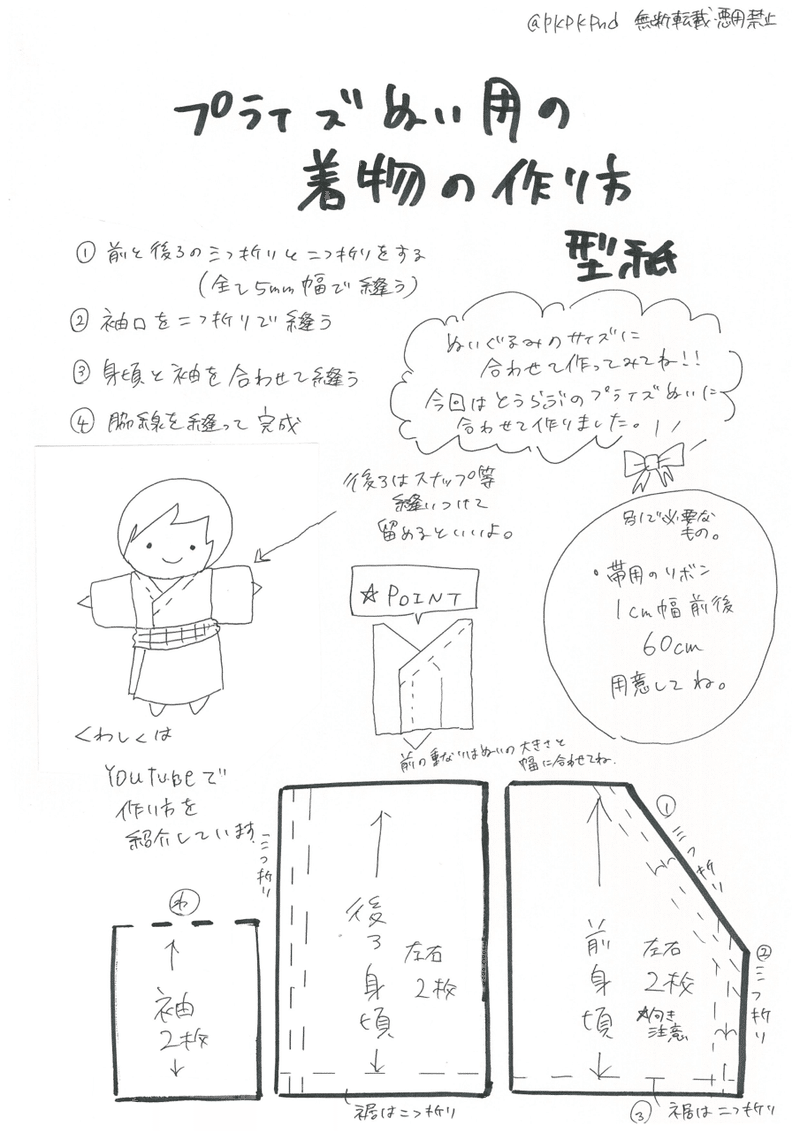 @PKPKPnd 無断転載・悪用禁止
プライズぬい用の
着物の作り方
型紙
① 前と後ろの三つ折りと二つ折りをする
(全て5mm幅で縫う)
② 袖口を二つ折りで縫う
③ 身頃と袖を合わせて縫う
④ 脇線を縫って完成
ぬいぐるみのサイズに
合わせて作ってみてね!!
今回はとうらぶのプライズぬいに
合わせて作りました。
後ろはスナップ等
縫いつけて
留めるといいよ。
別で必要な
もの。
・帯用のリボン
1cm幅前後
60cm
用意してね。
☆POINT
前の重なりはぬいの大きさと
幅に合わせてね。
くわしくは
YouTubeで
作り方を
紹介しています。
わ
袖
2枚
三つ折り
後ろ身頃
左右
2枚
裾は二つ折り
① 三つ折り
② 三つ折り
前身頃
左右
2枚
☆向き
注意
③ 裾は二つ折り